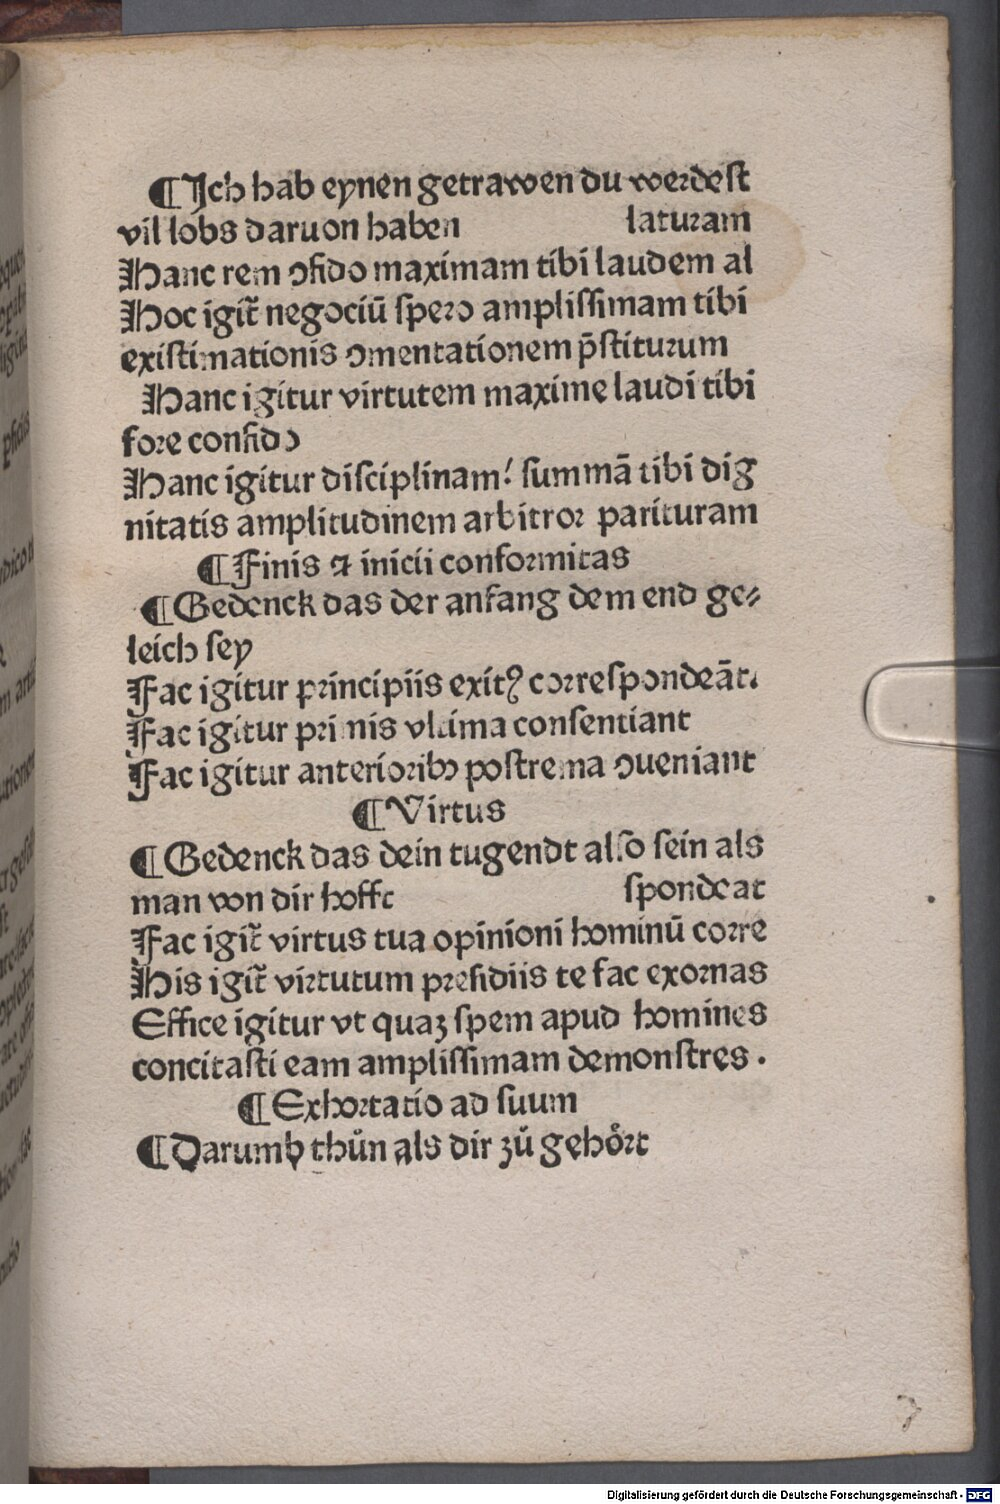 ¶Ich hab eynen getrawen du werdest
vil lobs daruon haben laturam
Hanc rem ↄfido maximam tibi laudem al
Hoc igit̃ negociū spero amplissimam tibi
existimationis ↄmentationem p̄stiturum
Hanc igitur virtutem maxime laudi tibi
fore confido
Hanc igitur disciplinam! summā tibi dig
nitatis amplitudinem arbitror parituram
¶Finis ⁊ inicii conformitas
¶Gedenck das der anfang dem end ge⸗
leich sey
Fac igitur principiis exitꝰ correspondeāt.
Fac igitur primis vltima consentiant
Fac igitur anterioribꝰ postrema ↄueniant
¶Virtus
¶Gedenck das dein tugendt also sein als
man von dir hofft spondeat
Fac igit̃ virtus tua opinioni hominū corre
His igit̃ virtutum presidiis te fac exornas
Effice igitur vt quaꝫ spem apud homines
concitasti eam amplissimam demonstres .
¶Exhortatio ad suum
¶Darumb thůn als dir zů gehoͤrt
7
Digitalisierung gefördert durch die Deutsche Forschungsgemeinschaft - DFG